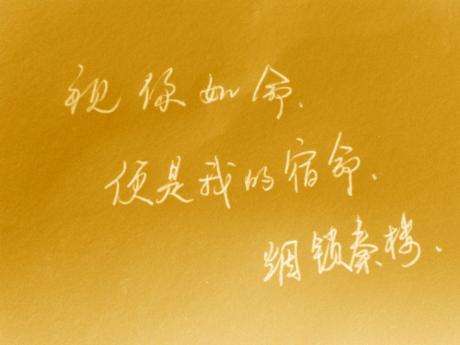 视你如命.
便是我的宿命.
烟锁秦楼.